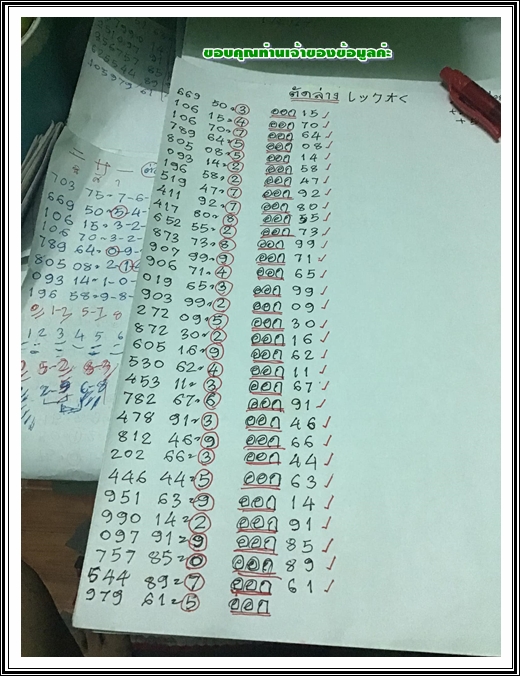 ขอบคุณท่านเจ้าของข้อมูลค่ะ
ตัดล่าง
669 50=3 ออก 15 ✓
106 15=4 ออก 70 ✓
106 70=7 ออก 64 ✓
789 64=5 ออก 08 ✓
805 08=5 ออก 14 ✓
093 14=2 ออก 58 ✓
196 58=2 ออก 47 ✓
519 47=7 ออก 92 ✓
411 92=7 ออก 80 ✓
417 80=8 ออก 55 ✓
652 55=2 ออก 73 ✓
873 73=8 ออก 99 ✓
907 99=9 ออก 71 ✓
906 71=4 ออก 65 ✓
019 65=3 ออก 99 ✓
903 99=2 ออก 09 ✓
272 09=5 ออก 30 ✓
872 30=2 ออก 16 ✓
605 16=9 ออก 62 ✓
530 62=4 ออก 11 ✓
453 11=3 ออก 67 ✓
782 67=6 ออก 91 ✓
478 91=3 ออก 46 ✓
812 46=9 ออก 66 ✓
202 66=3 ออก 44 ✓
446 44=5 ออก 63 ✓
951 63=9 ออก 14 ✓
990 14=2 ออก 91 ✓
097 91=9 ออก 85 ✓
757 85=0 ออก 89 ✓
544 89=7 ออก 61 ✓
979 61=5 ออก
703 75-7-6-
669 50-5-4-
106 15=3-2-
106 70-3-2-
789 64=0-9-
805 08=2
093 14=1-0-
196 58=9-8-
1 2 3 4 5 6